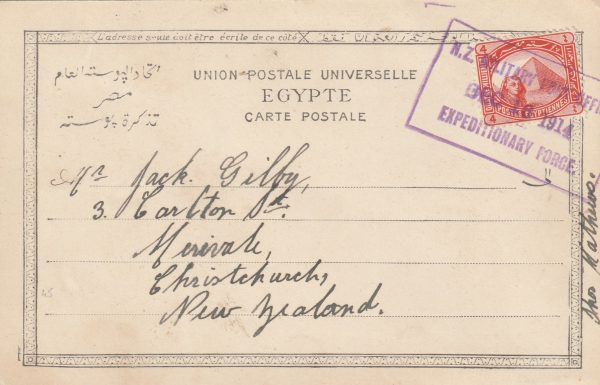 L'adresse seule doit être écrite de ce côté
اتحاد البوستة العام
مصر
تذكرة بوستة
UNION POSTALE UNIVERSELLE
EGYPTE
CARTE POSTALE
N.Z. MILITARY POST OFFI
DEC 1914
EXPEDITIONARY FORCE.
4 4
POSTES EGYPTIENNES
Mr Jack. Gilby,
3. Carlton St.
Merivale,
Christchurch,
New Zealand.
45
Thos Mathews.